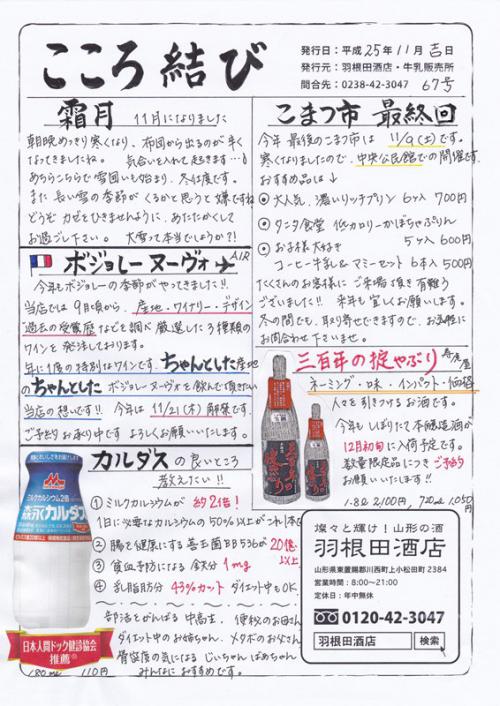 こころ結び
発行日：平成25年11月吉日
発行元：羽根田酒店・牛乳販売所
問合先：0238-42-3047 67号
霜月 11月になりました
朝晩めっきり寒くなり、布団から出るのが辛く
なってきましたね。 気合いを入れて起きます…
あちらこちらで雪囲いも始まり、冬仕度です。
また長い雪の季節がくるかと思うと嫌ですね
どうぞ カゼなどひきませんように、あたたかくして
お過ごし下さい。 大雪って本当でしょうか?!
こまつ市 最終回
今年最後のこまつ市は 11/9(土)です。
寒くなりましたので、中央公民館での開催です。
おすすめ品は↓
◉大人気、濃いリッチプリン 6ヶ入 700円
◉タニタ食堂 低カロリーかぼちゃぷりん
5ヶ入 600円
◉お子様大好き
コーヒー牛乳&マミーセット 6本入 500円
たくさんのお客様に ご来場頂き 有難う
ございました!! 来年も宜しくお願いします。
冬の間でも、取り寄せできますので、お気軽に
お問合わせ下さいませ。
ボジョレーヌーヴォ AIR
今年もボジョレーの季節がやってきました!!
当店では9月頃から、産地・ワイナリー・デザイン
過去の受賞歴などを調べ厳選した3種類の
ワインを発注しております。
年に1度の特別なワインです、ちゃんとした産地
のちゃんとしたボジョレーヌーヴォを飲んで頂きたい
当店の想いです!! 今年は 11/21(木)解禁です。
ご予約お承り中です よろしくお願いいたします。
三百年の掟やぶり 寿虎屋
ネーミング・味・インパクト・価格
人々を引きつけるお酒です。
今年も しぼりたて本醸造酒が
12月初旬に入荷予定です。
数量限定品につき ご予約
お願いいたします!!
1.8ℓ 2,100円、720㎖ 1,050円
カルダスの良いところ
教えたい!!
①ミルクカルシウムが 約2倍!
1日に必要なカルシウムの50%以上がこれ1本
②腸を健康にする善玉菌BB536が20億以上
③貧血予防になる 鉄分 1mg
④乳脂肪分 43%カット ダイエット中もOK
部活をがんばる 中高生、便秘のお母さん
ダイエット中のお姉ちゃん、メタボのお父さん
骨密度の気になる じいちゃん ばあちゃん
みんなに おすすめです。
ミルクカルシウム2倍
森永カルダス
日本人間ドック健診協会
推薦
180㎖ 110円
燦々と輝け！山形の酒
羽根田酒店
山形県東置賜郡川西町上小松田町2384
営業時間：8:00〜21:00
定休日：年中無休
0120-42-3047
羽根田酒店 検索